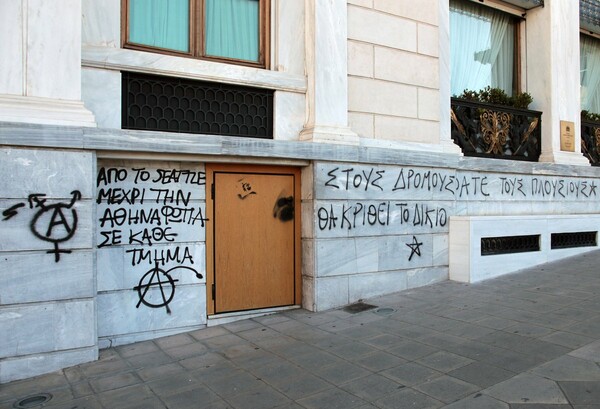 ΑΠΟ ΤΟ SEATTLE
ΜΕΧΡΙ ΤΗΝ
ΑΘΗΝΑ ΦΩΤΙΑ
ΣΕ ΚΑΘΕ
ΤΜΗΜΑ
ΣΤΟΥΣ ΔΡΟΜΟΥΣ ΦΑΤΕ ΤΟΥΣ ΠΛΟΥΣΙΟΥΣ
ΘΑ ΚΡΙΘΕΙ ΤΟ ΔΙΚΙΟ